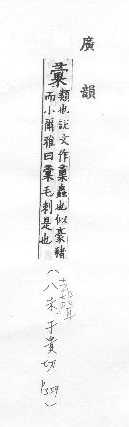 廣韻
彙 類也說文作𧲩蟲也似豪豬
而小爾雅曰彙毛刺是也
(去聲
八未于貴切 P.359)